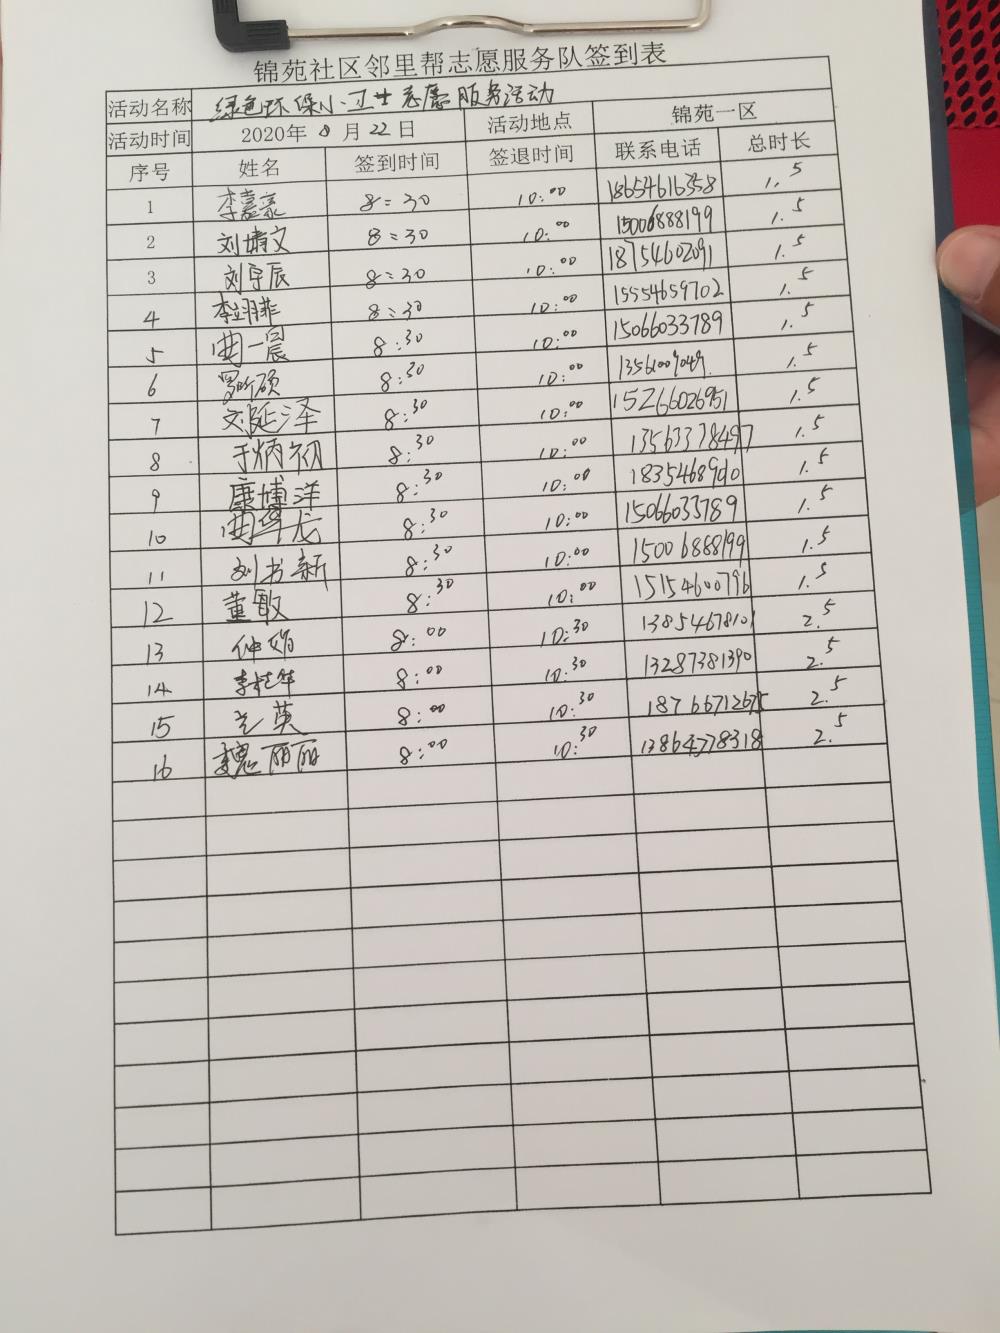 锦苑社区邻里帮志愿服务队签到表
活动名称 绿色环保小卫士志愿服务活动
活动时间 2020年 8 月 22 日 活动地点 锦苑一区
序号 姓名 签到时间 签退时间 联系电话 总时长
1 李嘉豪 8:30 10:00 18654616358 1.5
2 刘婧文 8:30 10:00 15006888199 1.5
3 刘宇辰 8:30 10:00 18754602091 1.5
4 李翊菲 8:30 10:00 15554659702 1.5
5 曲一晨 8:30 10:00 15066033789 1.5
6 罗昕硕 8:30 10:00 1.5
7 刘延泽 8:30 10:00 15266026951 1.5
8 于炳初 8:30 10:00 13563378497 1.5
9 康博洋 8:30 10:00 1.5
10 曲 龙 8:30 10:00 15066033789 1.5
11 刘书新 8:30 10:00 15006888199 1.5
12 董敏 8:30 10:00 15154600796 1.5
13 仲娟 8:00 10:30 13854678101 2.5
14 李桂华 8:00 10:30 13287381390 2.5
15 兰英 8:00 10:30 18766712675 2.5
16 魏丽丽 8:00 10:30 13864778318 2.5